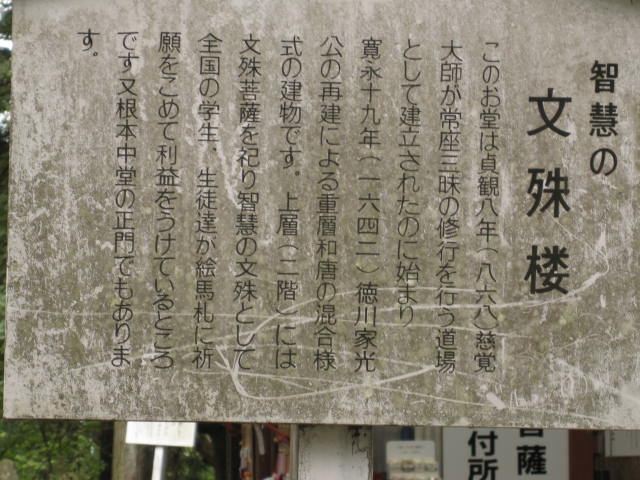 智慧の
文殊楼
このお堂は貞観八年(八六八)慈覚
大師が常座三昧の修行を行う道場
として建立されたのに始まり
寛永十九年(一六四二)徳川家光
公の再建による重層和唐の混合様
式の建物です。上層(二階)には
文殊菩薩を祀り智慧の文殊として
全国の学生、生徒達が絵馬札に祈
願をこめて利益をうけているところ
です又根本中堂の正門でもありま
す。
菩薩
付所